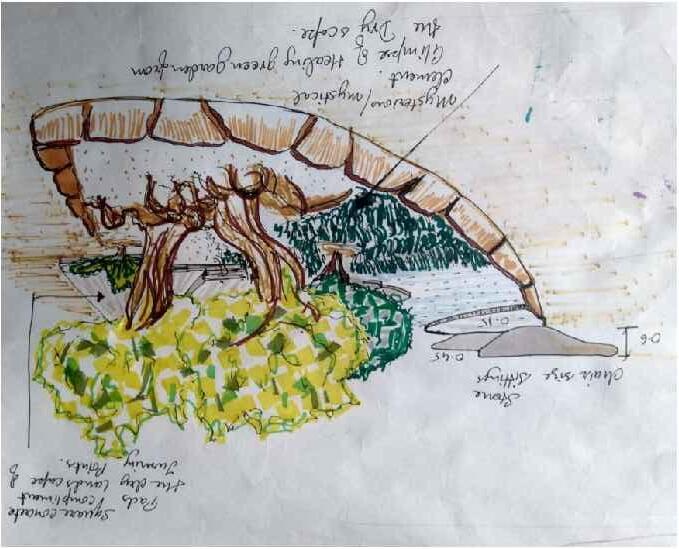 Square concrete
Pads & compliment
the dry landscape &
Turning Points.
Stone
Chair size Sittings
0.45
0.6
0.15
Mysterious/mystical
element.
Glimpse of Healing green garden from
the Dry scape.